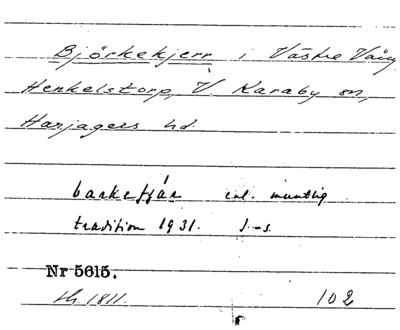 Björkekjerr i Västra Vång
Henkelstorp, V. Karaby sn,
Harjagers hd.
barkefjár enl. muntlig
tradition 1931. J-s.
Nr 5615.
sk. 1811. 102